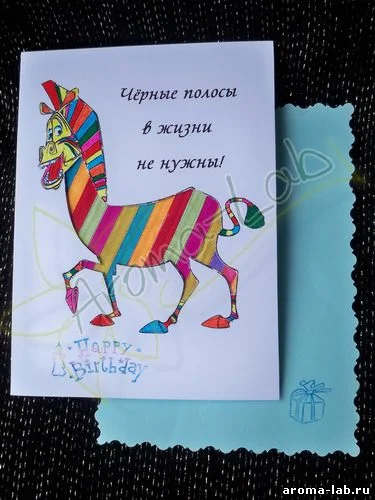 Чёрные полосы
в жизни
не нужны!
Aroma-Lab
Happy
Birthday
aroma-lab.ru